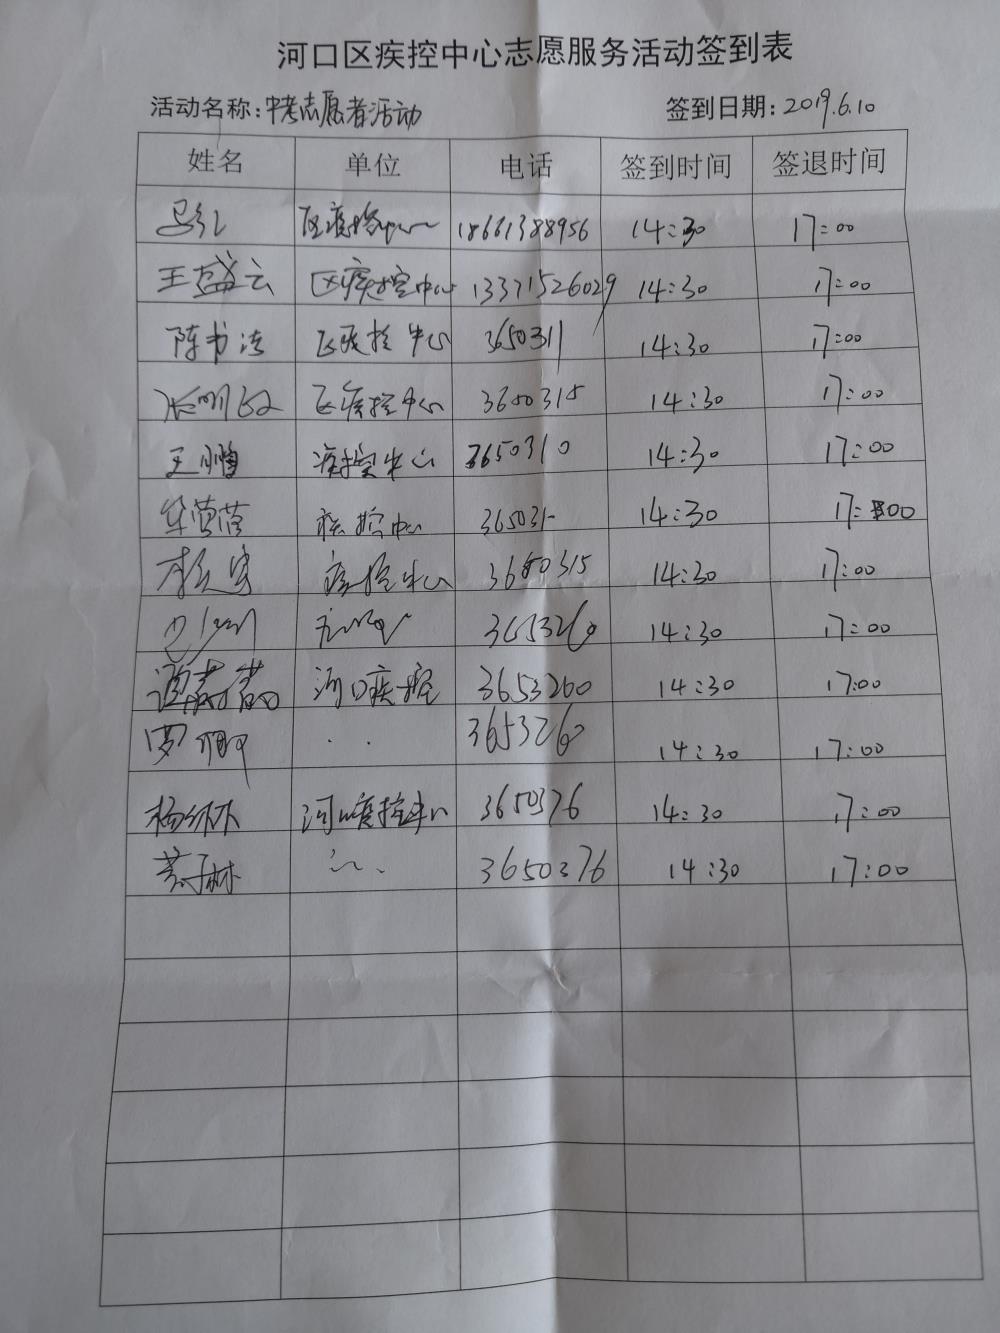 河口区疾控中心志愿服务活动签到表
活动名称：中考志愿者活动 签到日期：2019.6.10
姓名 单位 电话 签到时间 签退时间
区疾控中心 18661388956 14:30 17:00
王盛云 区疾控中心 13371526029 14:30 17:00
陈书涛 区疾控中心 3650311 14:30 17:00
区疾控中心 3650315 14:30 17:00
王鹏 疾控中心 3650310 14:30 17:00
疾控中心 365031 14:30 17:00
疾控中心 3650315 14:30 17:00
3653260 14:30 17:00
河口疾控 3653260 14:30 17:00
罗 3653260 14:30 17:00
杨 河口疾控中心 3650376 14:30 17:00
3650376 14:30 17:00